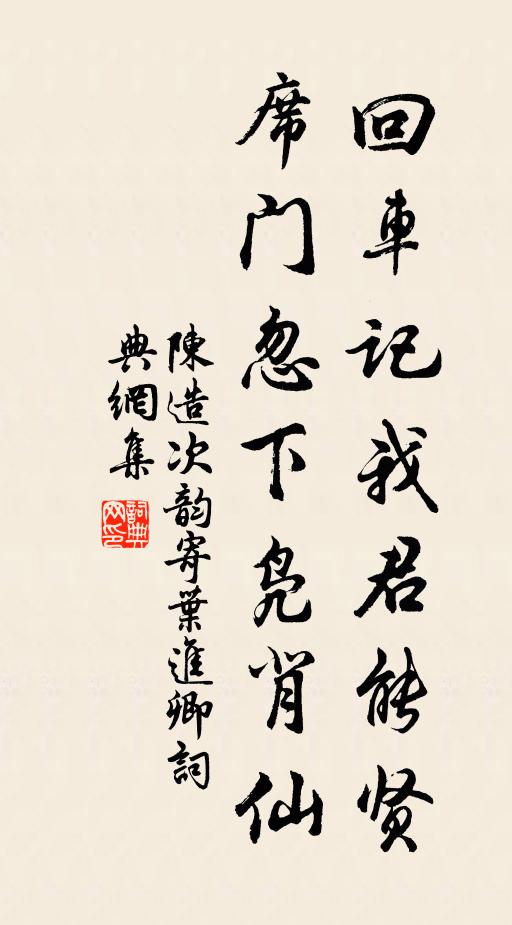 回車記我君能贤
席门忽下凫背仙
陳造次韵寄葉進卿詞
典網集
詞典
网印